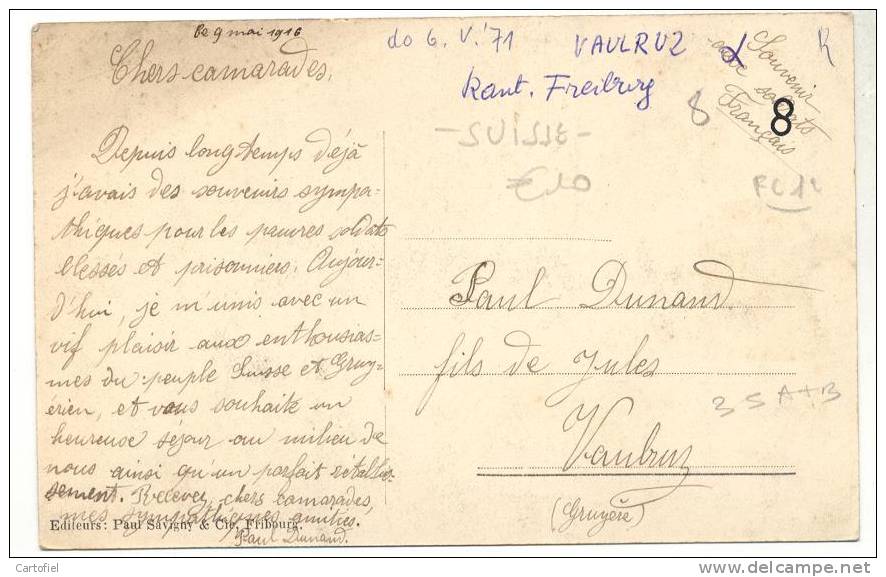 le 9 mai 1916
Chers camarades,
Depuis longtemps déjà
j'avais des souvenirs sympa-
thiques pour les pauvres soldats
blessés et prisonniers. Aujour-
d'hui, je m'unis avec un
vif plaisir aux enthousias-
mes du peuple Suisse et Gruy-
érien, et vous souhaite un
heureuse séjour au milieu de
nous ainsi qu'un parfait rétablis-
sement. Recevez, chers camarades,
mes sympathiques amitiés.
Paul Dunand.
Editeurs: Paul Savigny & Cie, Fribourg.
do 6. V. '71 VAULRUZ
Kant. Freiburg
Souvenir
aux soldats
Français
R
8
8
- SUISSE -
€10
FC12
Paul Dunand
fils de Jules
Vaulruz
(Gruyère)
35 A+B
Cartofiel
www.delcampe.net